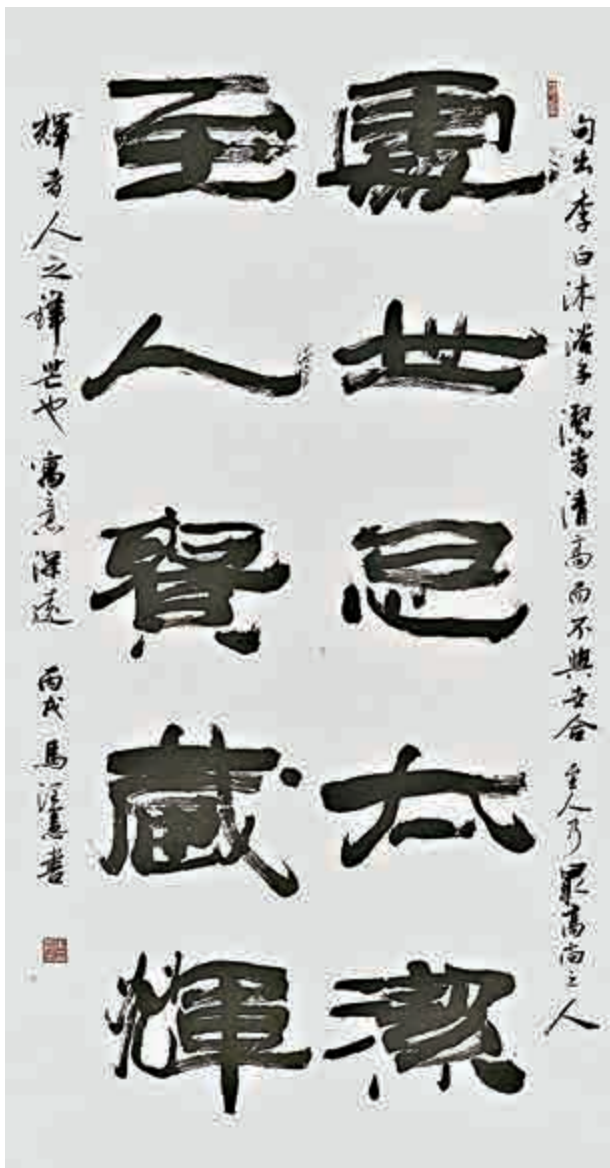 句出李白沐浴子潔者清高而不與世合至人乃最高尚之人
處世忌太潔
至人貴藏輝
輝者人之鋒芒也寓意深遠丙戌馬書